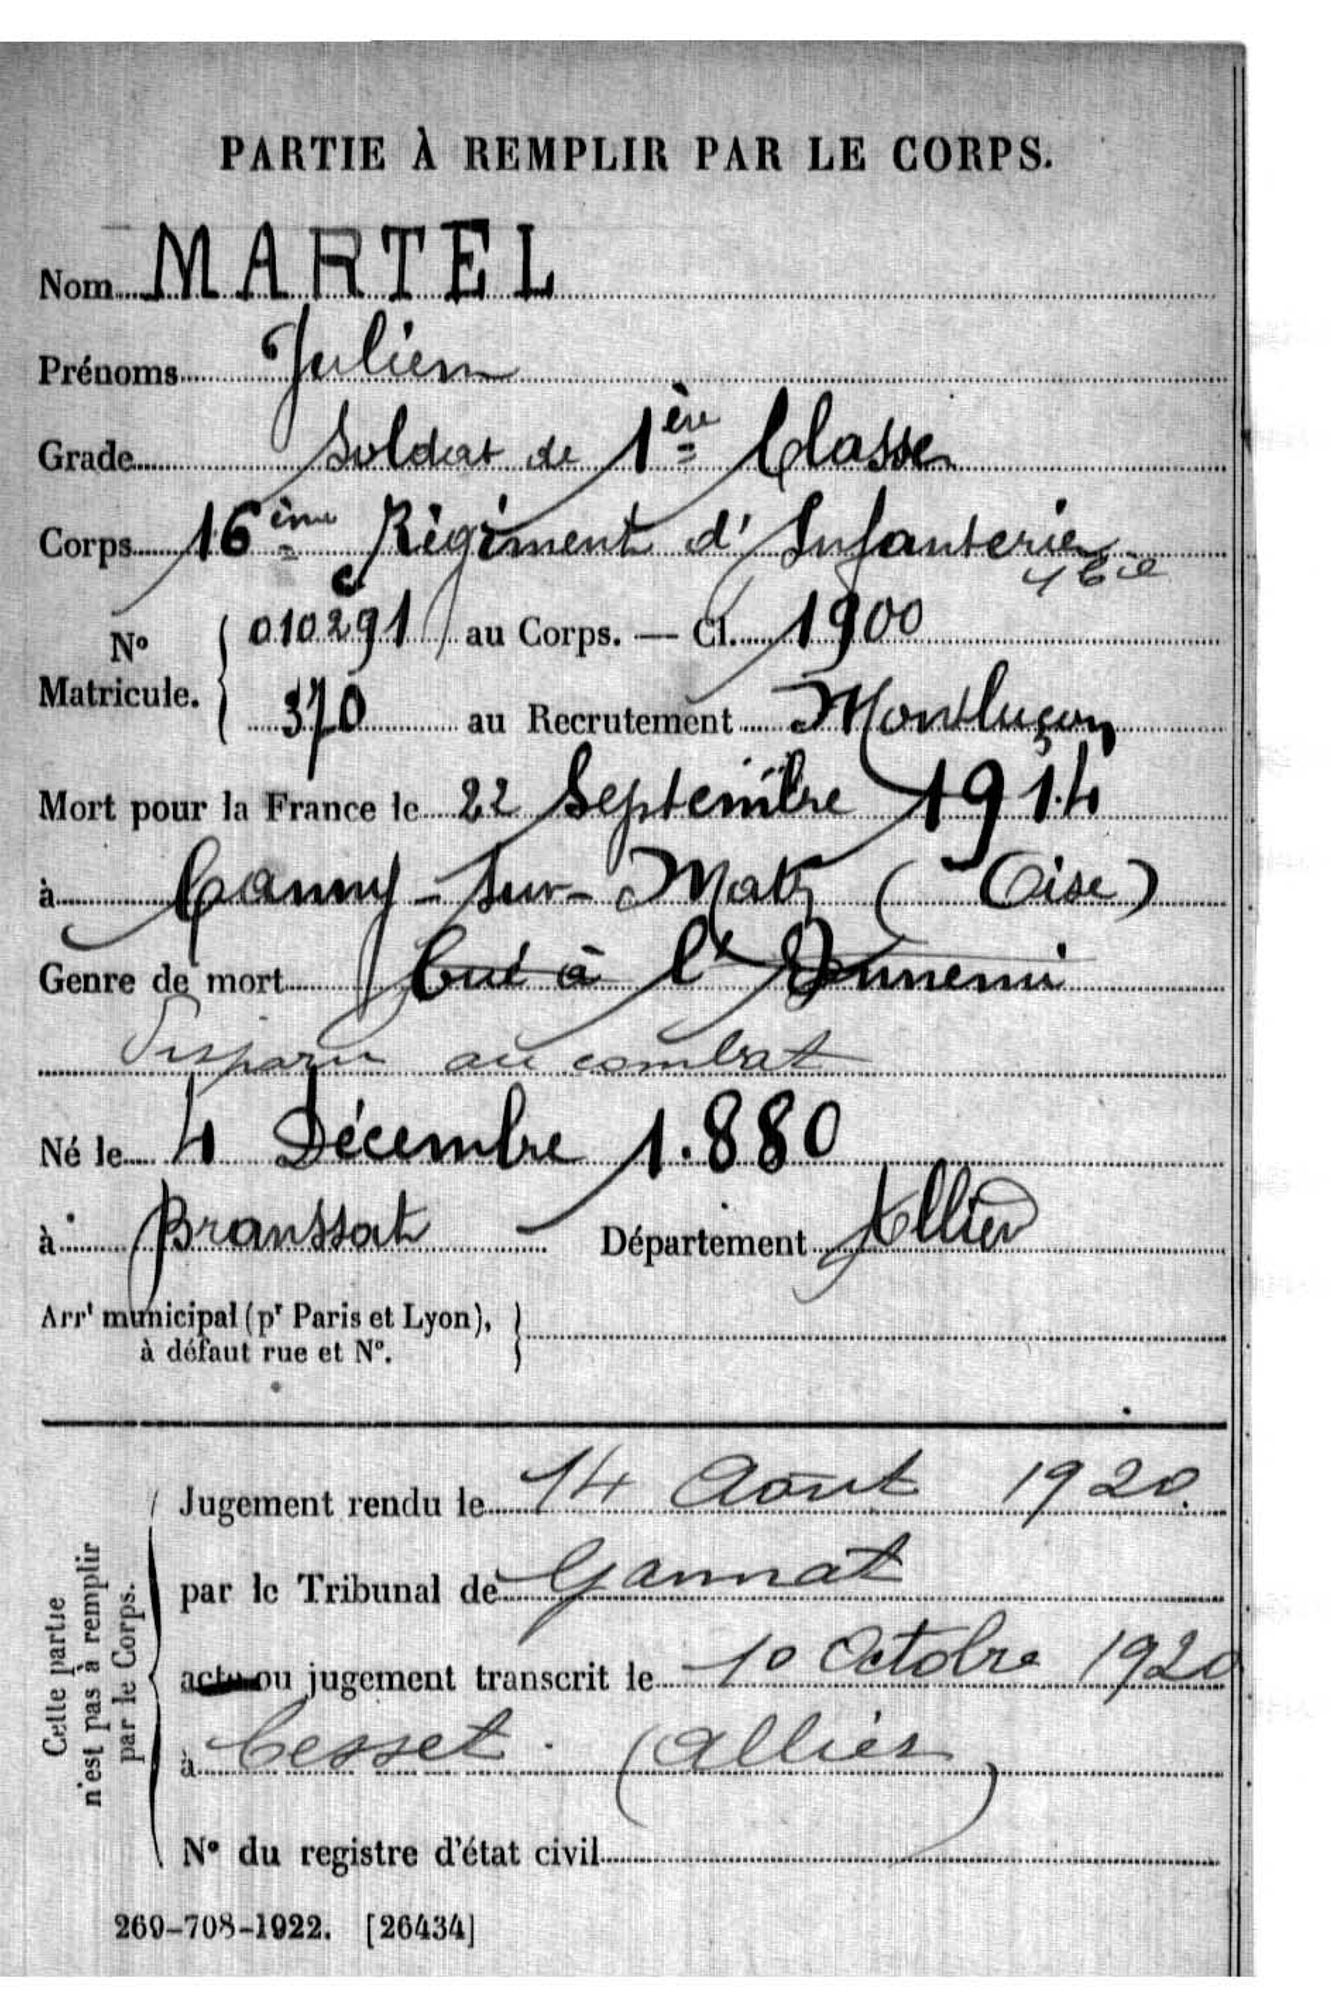 PARTIE À REMPLIR PAR LE CORPS.
Nom MARTEL
Prénoms Julien
Grade Soldat de 1ère Classe
Corps 16ème Régiment d'Infanterie
N° Matricule. 010291 au Corps. — Cl. 1900
370 au Recrutement Montluçon
Mort pour la France le 22 Septembre 1914
à Canny-sur-Matz (Oise)
Genre de mort Tué à l'Ennemi
Disparu au combat
Né le 4 Décembre 1.880
à Branssat Département Allier
Arrt municipal (pr Paris et Lyon),
à défaut rue et N°.
Cette partie
n'est pas à remplir
par le Corps.
Jugement rendu le 14 Août 1920.
par le Tribunal de Gannat
acte ou jugement transcrit le 10 Octobre 1920
à Cesset. (Allier)
N° du registre d'état civil
269-708-1922. [26434]